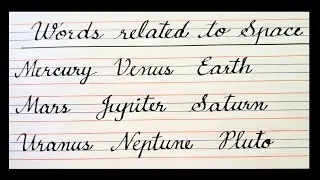 Words related to Space
Mercury Venus Earth
Mars Jupiter Saturn
Uranus Neptune Pluto